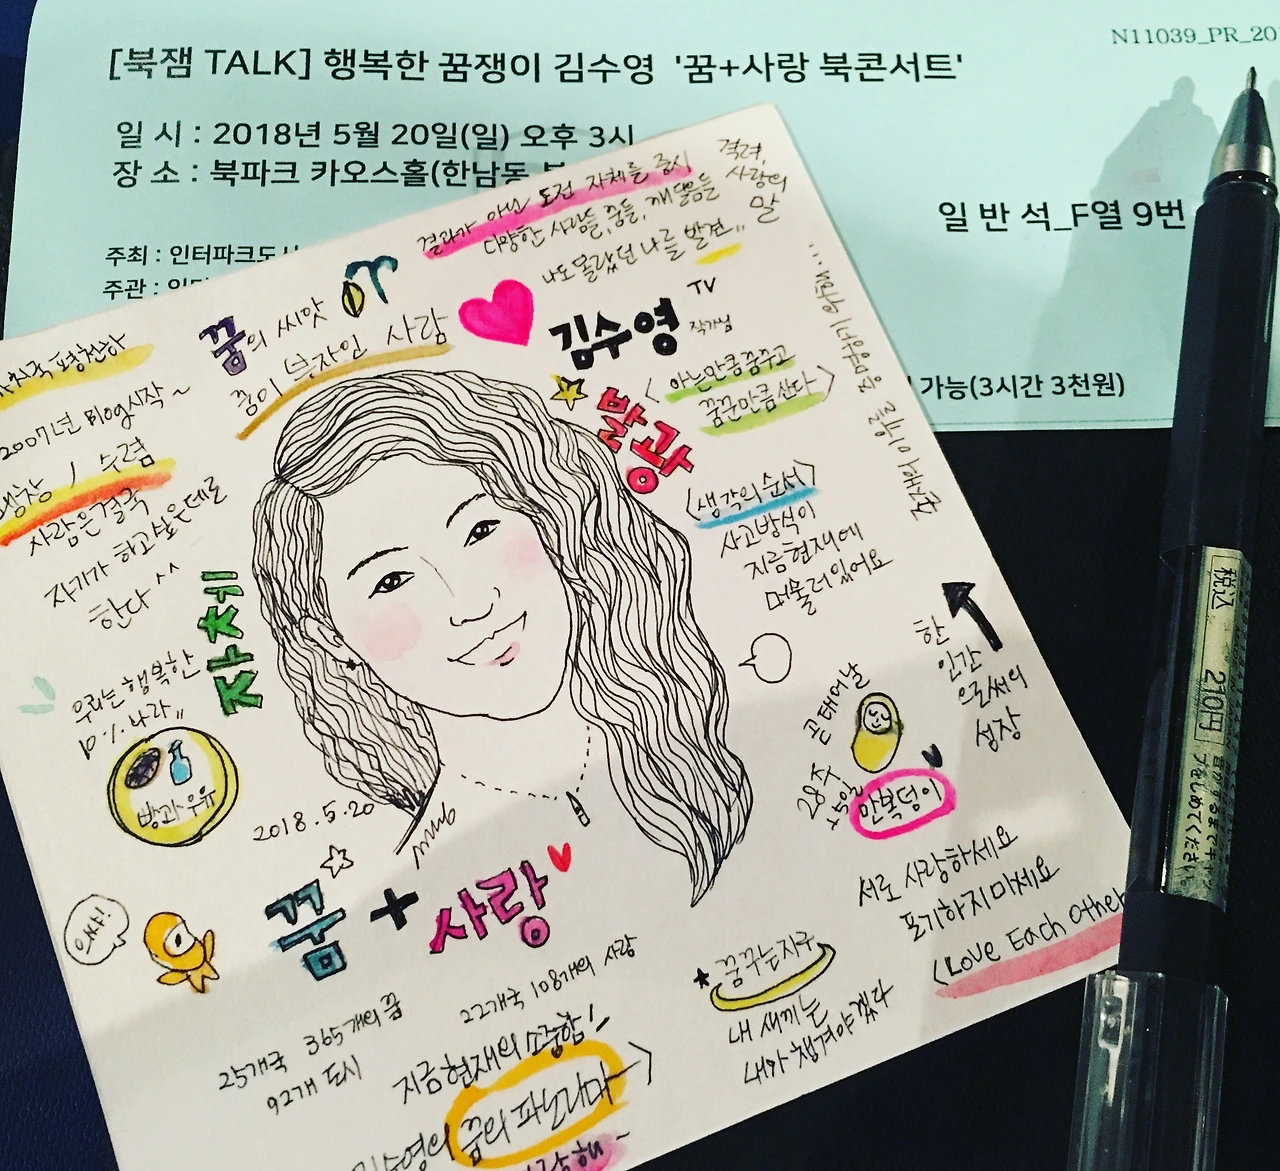 N11039_PR_20
[북잼 TALK] 행복한 꿈쟁이 김수영 '꿈+사랑 북콘서트'
일 시 : 2018년 5월 20일(일) 오후 3시
장 소 : 북파크 카오스홀(한남동
일 반 석_F열 9번
주최 : 인터파크도서
주관 :
가능(3시간 3천원)
결과가 아닌 도전 자체를 중시
다양한 사람들, 꿈들, 깨달음들
나도 몰랐던 나를 발견"
격려,
사랑의
말
꿈의 씨앗
꿈이 부자인 사람
김수영 TV
작가님
<아는만큼 꿈꾸고
꿈꾼만큼 산다>
발광
<생각의 순서>
사고방식이
지금 현재에
머물러있어요
평천하
2007년 Blog시작 ~
/ 수렴
사람은 결국
자기가 하고싶은데로
한다 ^^
자취
우리는 행복한
10% 나라"
빵과우유
2018.5.20
꿈 + 사랑
으쌰!
25개국 365개의 꿈
92개 도시
22개국 108개의 사랑
지금현재의 소중함!
김수영의 꿈의 파노라마
한
인간
으로써의
성장
곧태어날
28주
+5일
만복덩이
서로 사랑하세요
포기하지마세요
(Love Each Other
꿈꾸는지구
내 새끼는
내가 챙겨야겠다
税込 210円